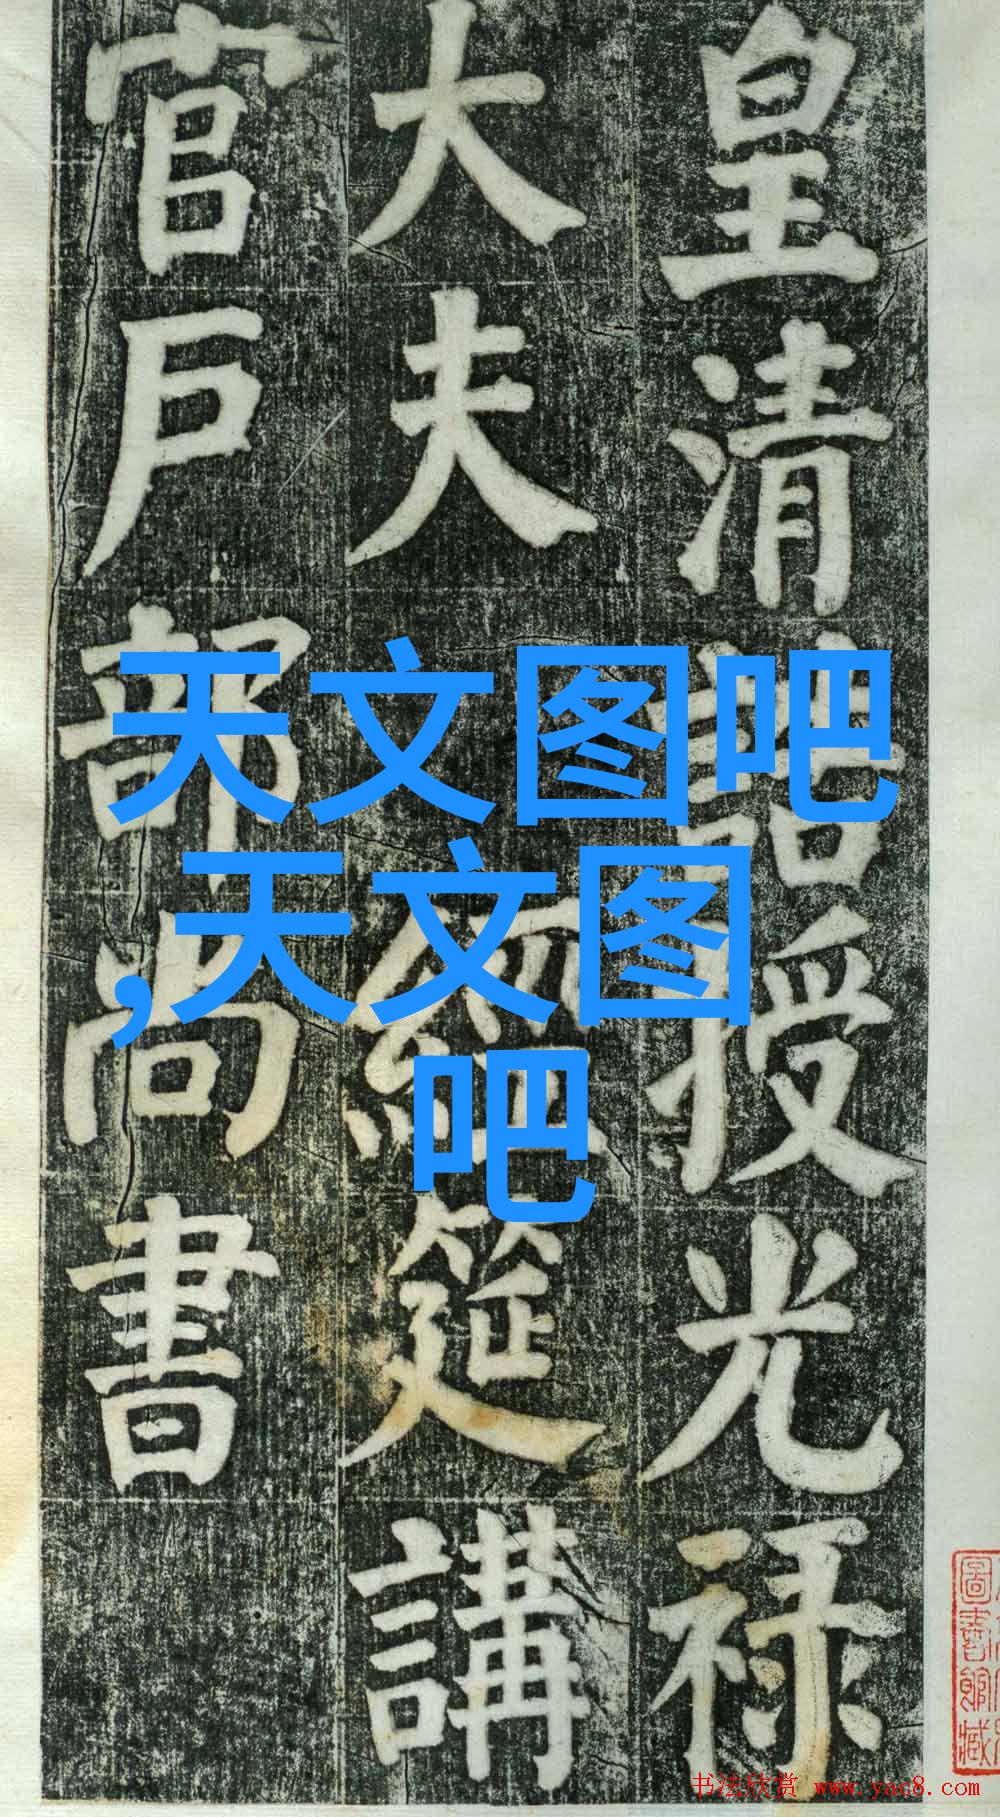 皇清誥授光禄
大夫
經筵講
官戶部尚書
天文图吧
,天文图
吧
書法欣赏 www.yac8.com